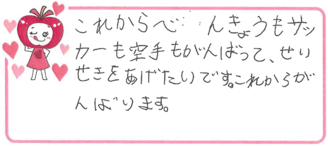 これからべんきょうもサッ
カーも空手もがんばって、せい
せきをあげたいです。これからが
んばります。